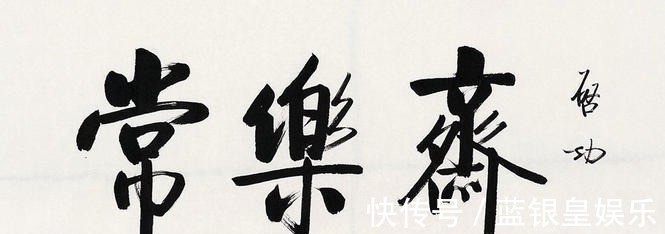 常樂齋
启功
快传号/蓝银皇娱乐